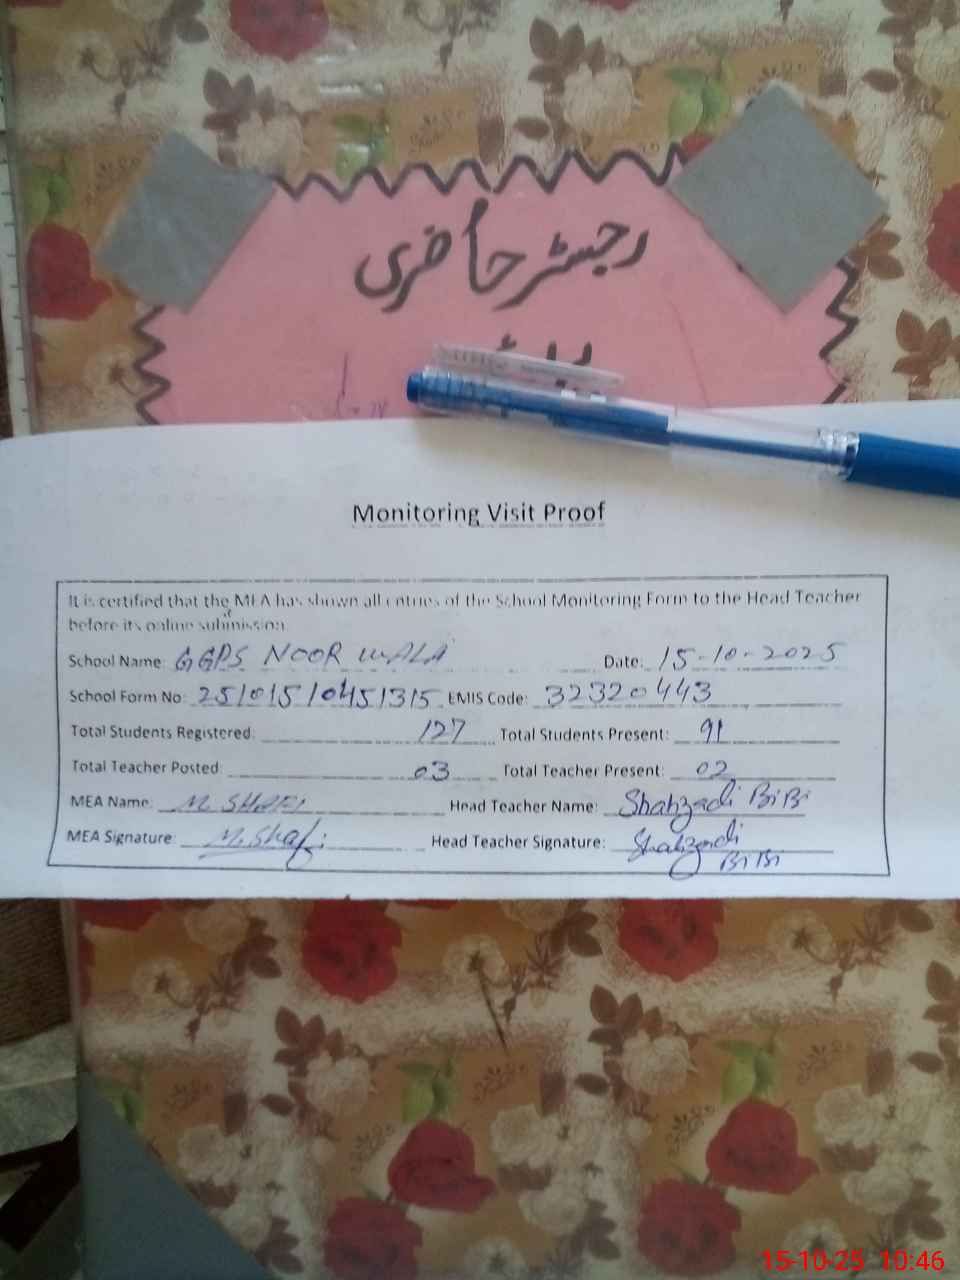 رجسٹر حاضری
Monitoring Visit Proof
It is certified that the MEA has shown all entries of the School Monitoring Form to the Head Teacher
before its online submission.
School Name: GGPS NOOR WALA Date: 15-10-2025
School Form No: 25101510451315 EMIS Code: 32320443
Total Students Registered: 127 Total Students Present: 91
Total Teacher Posted: 03 Total Teacher Present: 02
MEA Name: M SHAFI Head Teacher Name: Shahzadi BiBi
MEA Signature: M. Shafi Head Teacher Signature: Shahzadi
BiBi
15-10-25 10:46